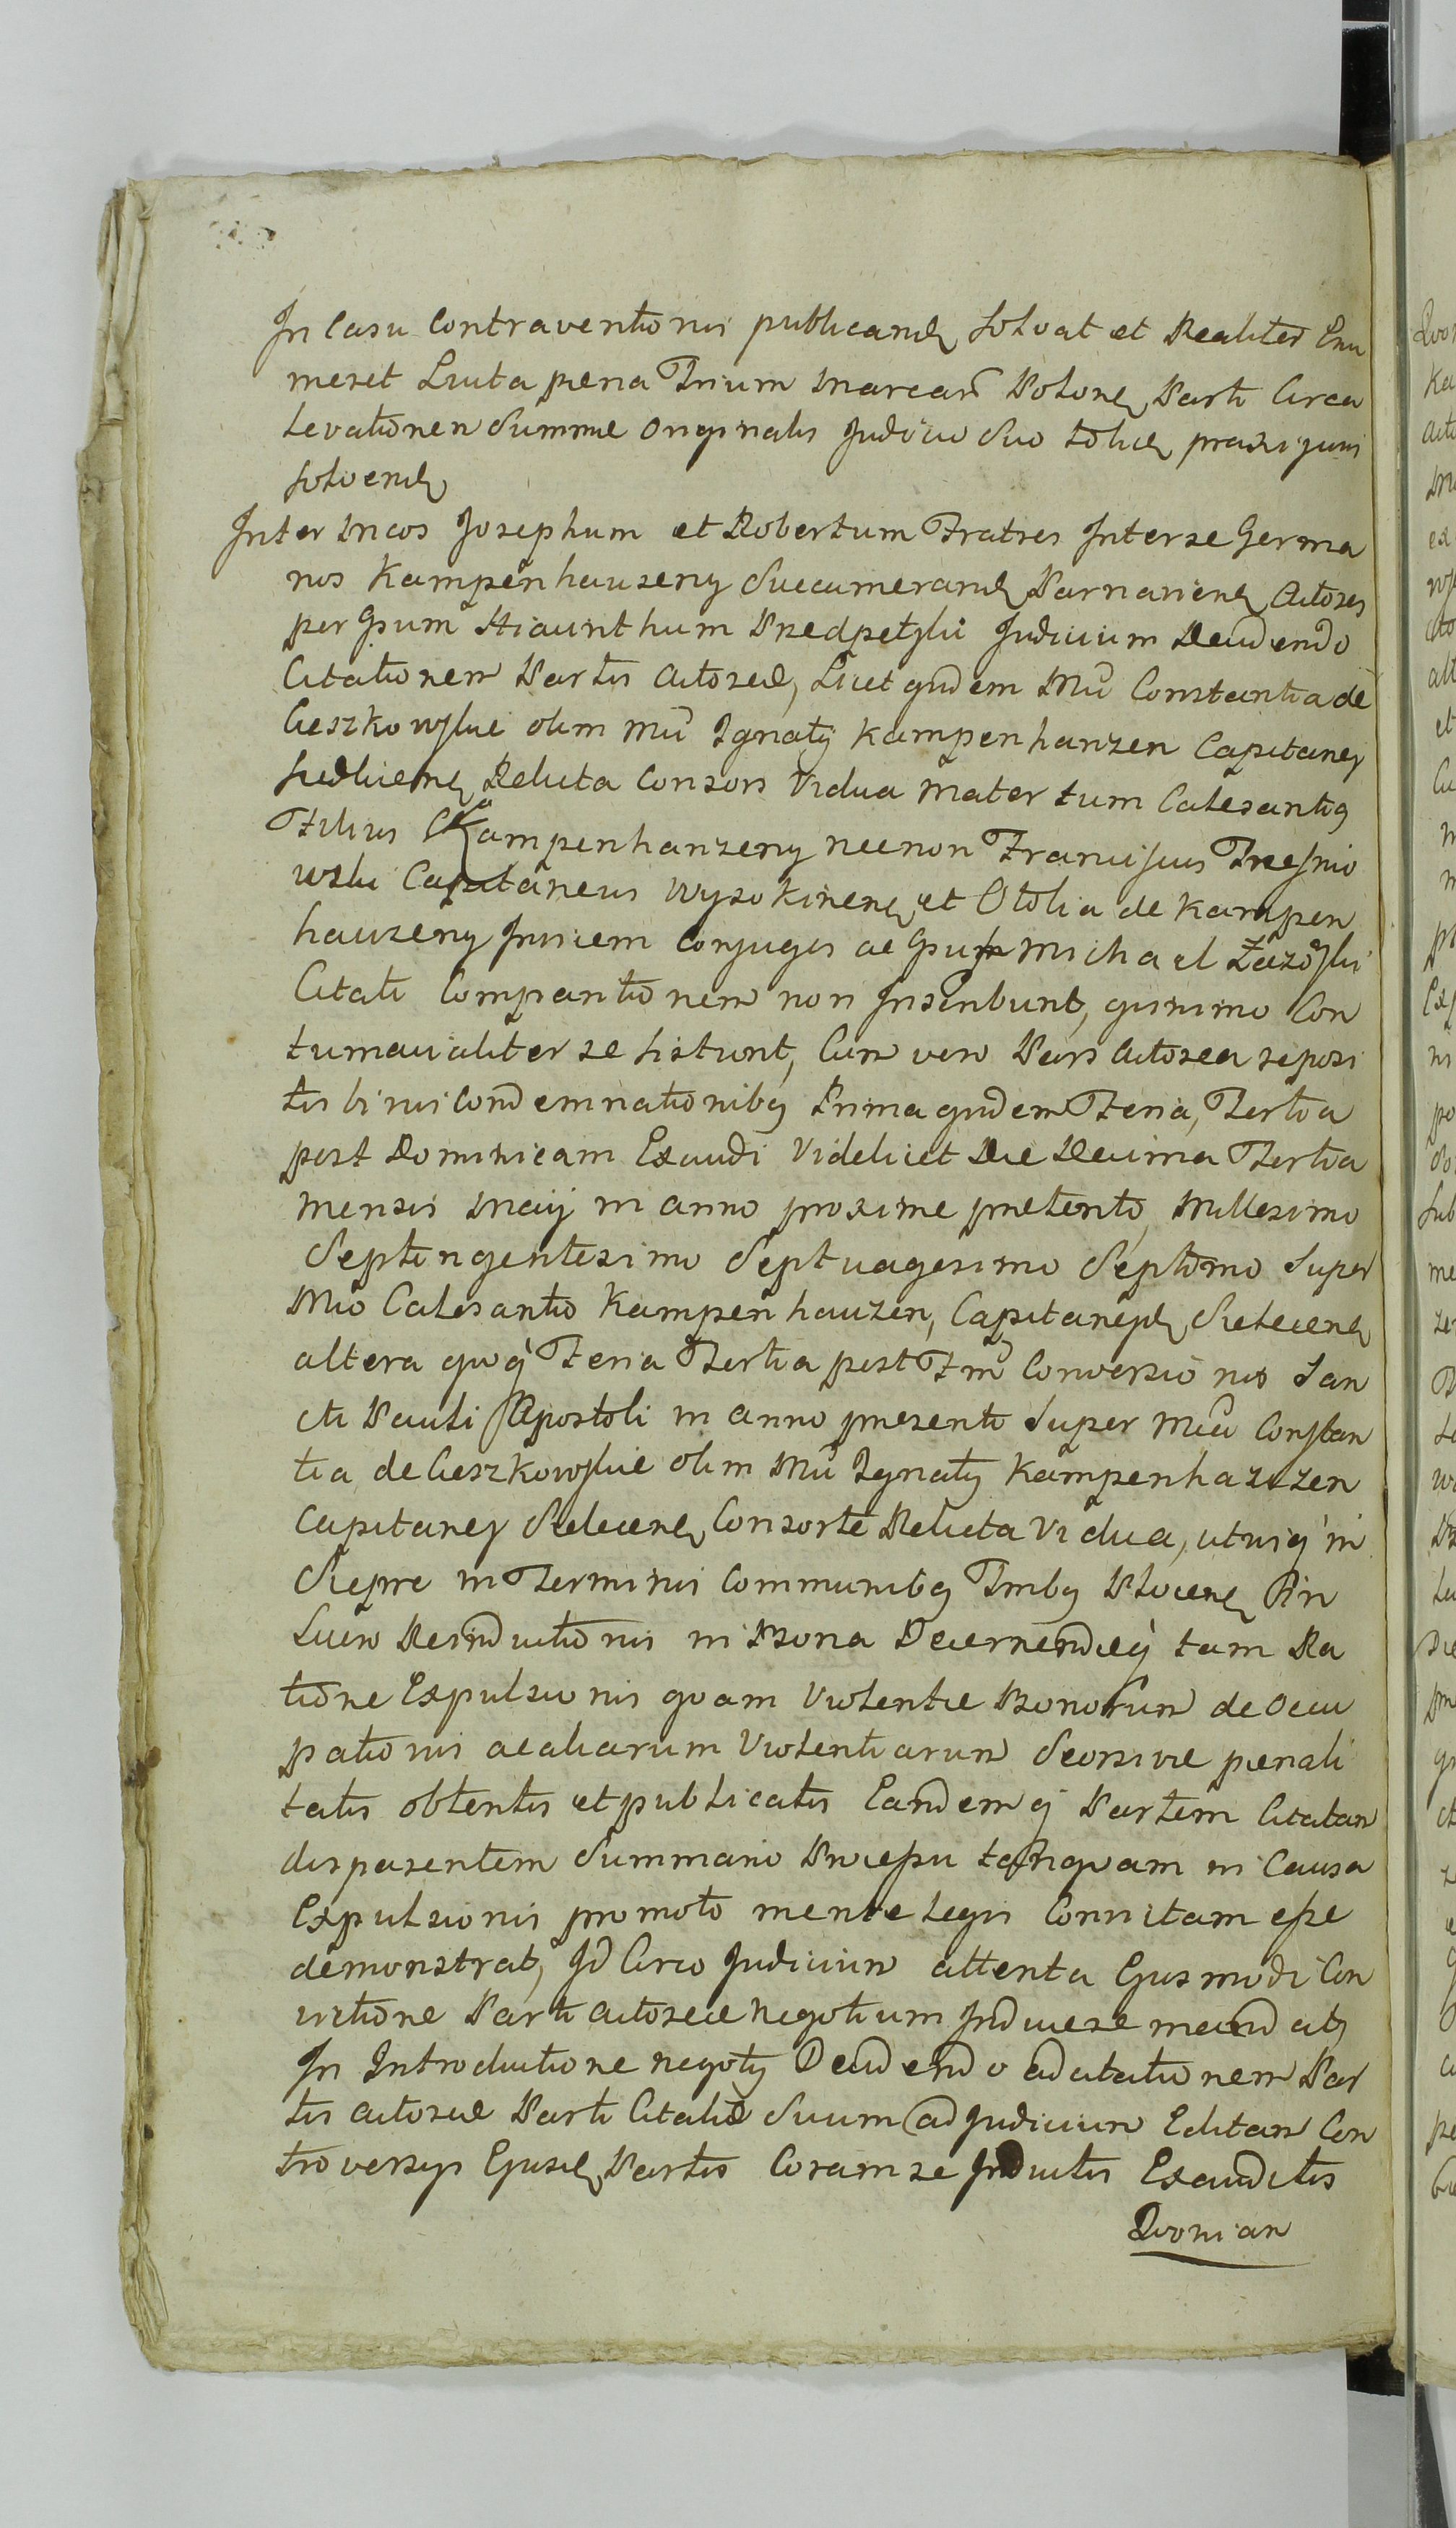 In Casu Contraventionis publicand solvat et Realiter Enu
meret Luita pena Trium Marcar Polon Parti Circa
Levationem Summe Originalis Judicio Suo toties praxi juris
solvend
Inter Mcos Josephum et Robertum Fratres Inter se Germa
nos Kampenhauzeny Succamerarid Parnavien Actores
per Gsum Hiacinthum Judicium Deudendo
Citationem Partis Actoreae, Licet quidem Mca Constantia de
Cieszkowskie olim Mci Ignatij Kampenhauzen Capitanej
Siedlecien Relicta Consors Vidua Mater tum Calesantiq
Filius Kampenhauzeny necnon Franciscus
wski Capitaneus Wysokinen et Otolia de Kampen
hauzeny Invicem Conjuges ac Gsus Michael
Citati Comparitionem non Inscribunt, quinimo Con
tumacialiter se sistunt, Cum vero Pars Actorea reposi
tis binis Condemnationibq Prima quidem Feria Tertia
post Dominicam Exaudi Videlicet Die Decima Tertia
Mensis Maij in anno proxime preterito Millesimo
Septingentesimo Septuagesimo Septimo super
Mco Calesantio Kampenhauzen, Capitanejd Sielecien
altera quoq Feria Tertia post Fm Conversionis San
cti Pauli Apostoli in anno presenti Super Mca Constan
tia de Cieszkowskie olim Mci Ignatij Kampenhauzen
Capitanej Sielecien Consorte Relicta Vidua, utrisq in
Siepre in Terminis Communibq Tmbq Plocen Pin
Lucro Reinductionis in Bona Decernendieq tam Ra
tione Expulsionis quam Violentae Bonorum de Occu
pationis ac aliarum Violentiarum Seorsivae penali
tatis obtentis et publicatis Eandemq Partem Citatam
disparentem Summario Processu tanquam in Causa
Expulsionis promoto mente Legis Convictam esse
demonstrat, Id Circo Judicium attenta Ejusmodi Con
victione Parti Actoreae Negotium Inducere mandat
In Introductione negotij Deudendo ad citationem Par
tis actoreae Parti Citatae Suum ad Judicium Editam Con
troversys Ejusd Partis Coram se Inductis Exauditis
Quoniam